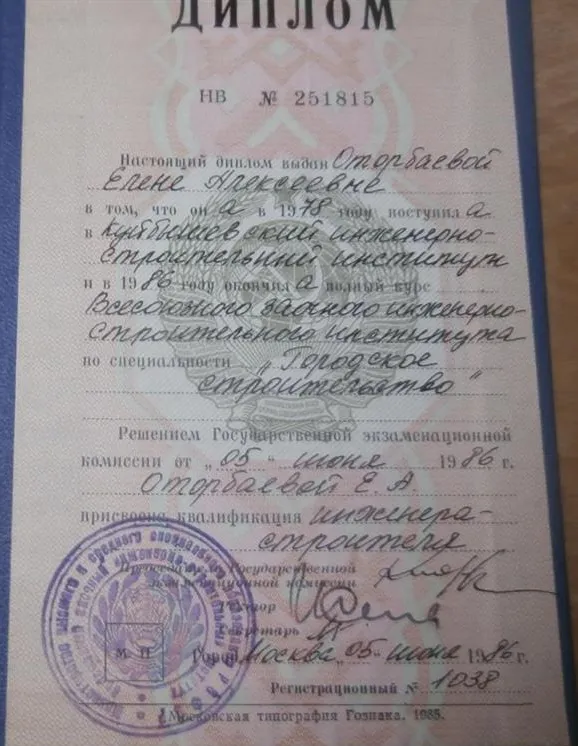 ДИПЛОМ
НВ № 251815
Настоящий диплом выдан Оторбаевой
Елене Алексеевне
в том, что он а в 1978 году поступил а
в Куйбышевский инженерно-
строительный институт
и в 1986 году окончил а полный курс
Всесоюзного заочного инженерно-
строительного института
по специальности „Городское
строительство"
Решением Государственной экзаменационной
комиссии от „05" июня 1986 г.
Оторбаевой Е. А.
присвоена квалификация инженера-
строителя
Председатель Государственной
экзаменационной комиссии
Ректор
Секретарь
М П
Город Москва „05" июня 1986 г.
Регистрационный № 1038
Московская типография Гознака. 1985.